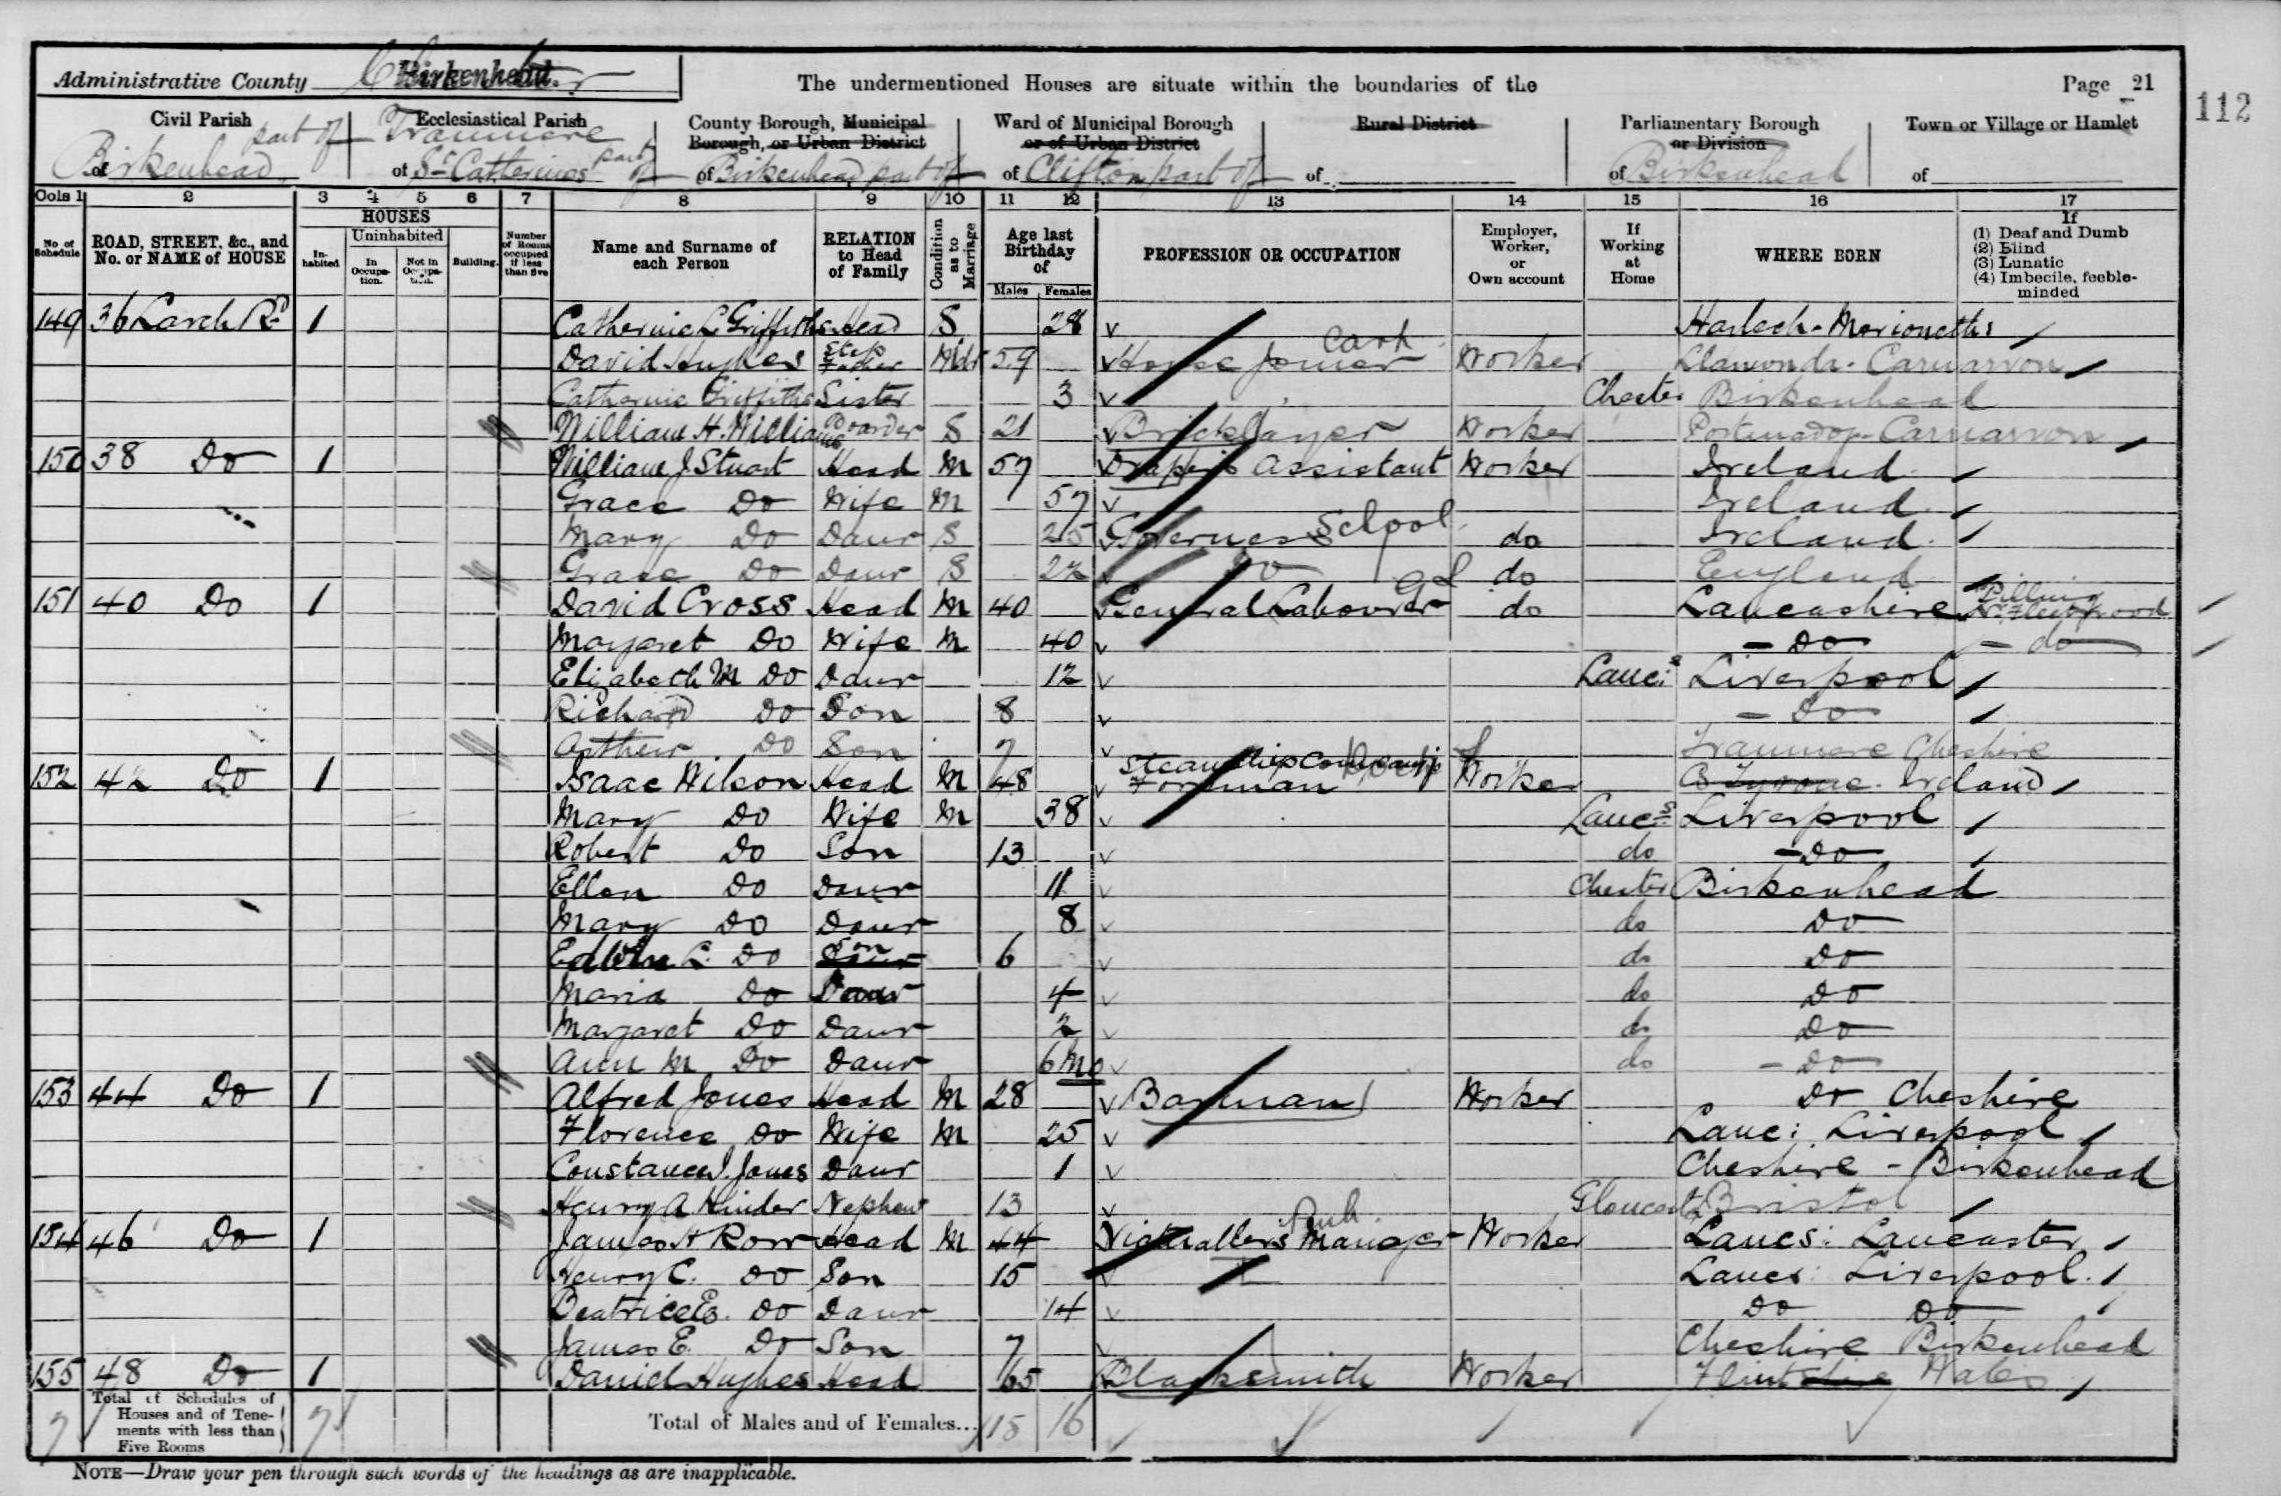 Administrative County Birkenhead. Chester
The undermentioned Houses are situate within the boundaries of the
Page 21
112
Civil Parish
part of
of Birkenhead
Ecclesiastical Parish
Tranmere
of St Catherines part of
County Borough, Municipal
Borough, or Urban District
of Birkenhead part of
Ward of Municipal Borough
or of Urban District
of Clifton part of
Rural District
of
Parliamentary Borough
or Division
of Birkenhead
Town or Village or Hamlet
of
Cols 1 2 3 4 5 6 7 8 9 10 11 12 13 14 15 16 17
No of Schedule
ROAD, STREET, &c., and No. or NAME of HOUSE
HOUSES
Inhabited
Uninhabited
In Occupation.
Not in Occupation.
Building.
Number of Rooms occupied if less than five
Name and Surname of each Person
RELATION to Head of Family
Condition as to Marriage
Age last Birthday of
Males Females
PROFESSION OR OCCUPATION
Employer, Worker, or Own account
If Working at Home
WHERE BORN
If
(1) Deaf and Dumb
(2) Blind
(3) Lunatic
(4) Imbecile, feeble-minded
149 36 Larch Rd 1 Catherine L. Griffiths Head S 28 Harlech - Merioneths
David Hughes Step Father Widr 59 House Joiner Carp Worker Llanwnda - Carnarvon
Catherine Griffiths Sister 3 Chester Birkenhead
William H. Williams Boarder S 21 Bricklayer Worker Portmadoc - Carnarvon
150 38 Do 1 William J Stuart Head M 57 Draper's Assistant Worker Ireland
Grace Do Wife M 57 Ireland
Mary Do Daur S 25 Governess School do Ireland
Grace Do Daur S 22 Do do England
151 40 Do 1 David Cross Head M 40 General Labourer do Lancashire Pilling Nr Fleetwood
Margaret Do Wife M 40 - Do - do
Elizabeth M Do Daur 12 Lancs Liverpool
Richard Do Son 8 - Do
Arthur Do Son 7 Tranmere Cheshire
152 42 Do 1 Isaac Wilson Head M 48 Steamship Company Dock Foreman Worker Co Tyrone Ireland
Mary Do Wife M 38 Lancs Liverpool
Robert Do Son 13 do - Do
Ellen Do Daur 11 Chester Birkenhead
Mary Do Daur 8 do Do
Edwin L. Do Daur Son 6 do Do
Maria Do Daur 4 do Do
Margaret Do Daur 2 do Do
Ann M Do Daur 6 Mo do - Do
153 44 Do 1 Alfred Jones Head M 28 Barman Worker Do Cheshire
Florence Do Wife M 25 Lanc: Liverpool
Constance J. Jones Daur 1 Cheshire - Birkenhead
Henry A Hinder Nephew 13 Gloucester Bristol
154 46 Do 1 James H Row Head M 44 Victuallers Manager Pub Worker Lancs: Lancaster
Henry C. Do Son 15 Lancs: Liverpool
Beatrice E. Do Daur 14 Do Do
James E. Do Son 7 Cheshire Birkenhead
155 48 Do 1 Daniel Hughes Head 65 Blacksmith Worker Flintshire Wales
7 Total of Schedules of Houses and of Tenements with less than Five Rooms 7
Total of Males and of Females... 15 16
NOTE—Draw your pen through such words of the headings as are inapplicable.